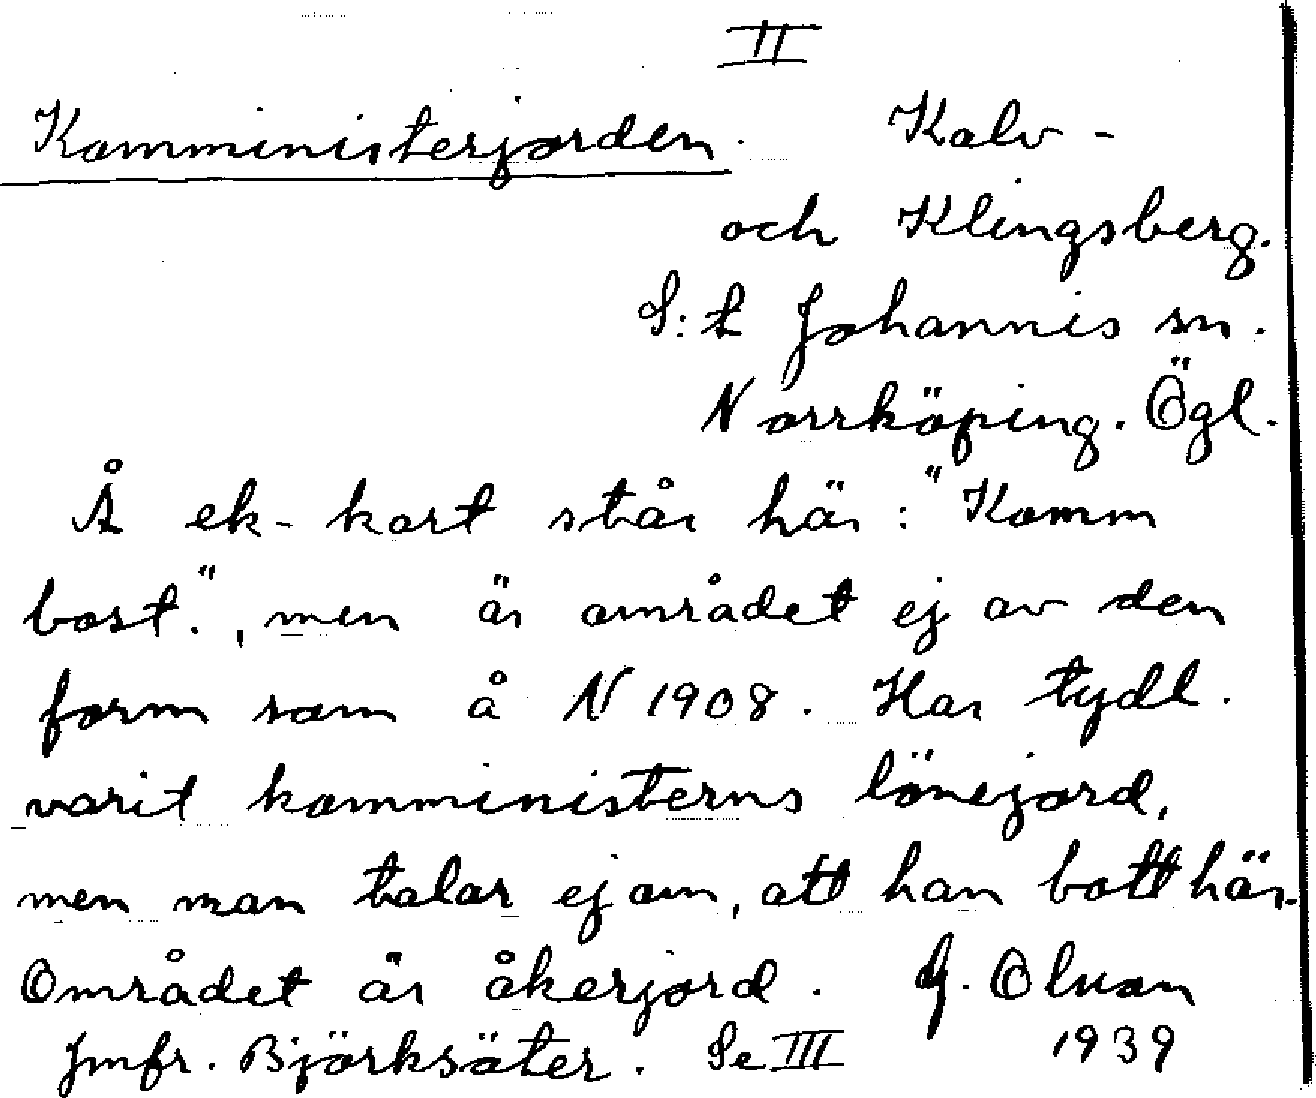 II
Komministerjorden. Kalv-
och Klingsberg.
S:t Johannis sn.
Norrköping. Ögl.
Å ek-kart står här: "Komm
bost.", men är området ej av den
form som å N 1908. Har tydl.
varit komministerns lönejord,
men man talar ej om, att han bott här.
Området är åkerjord. G. Olsson
Jmfr. Björksäter. Se III 1939